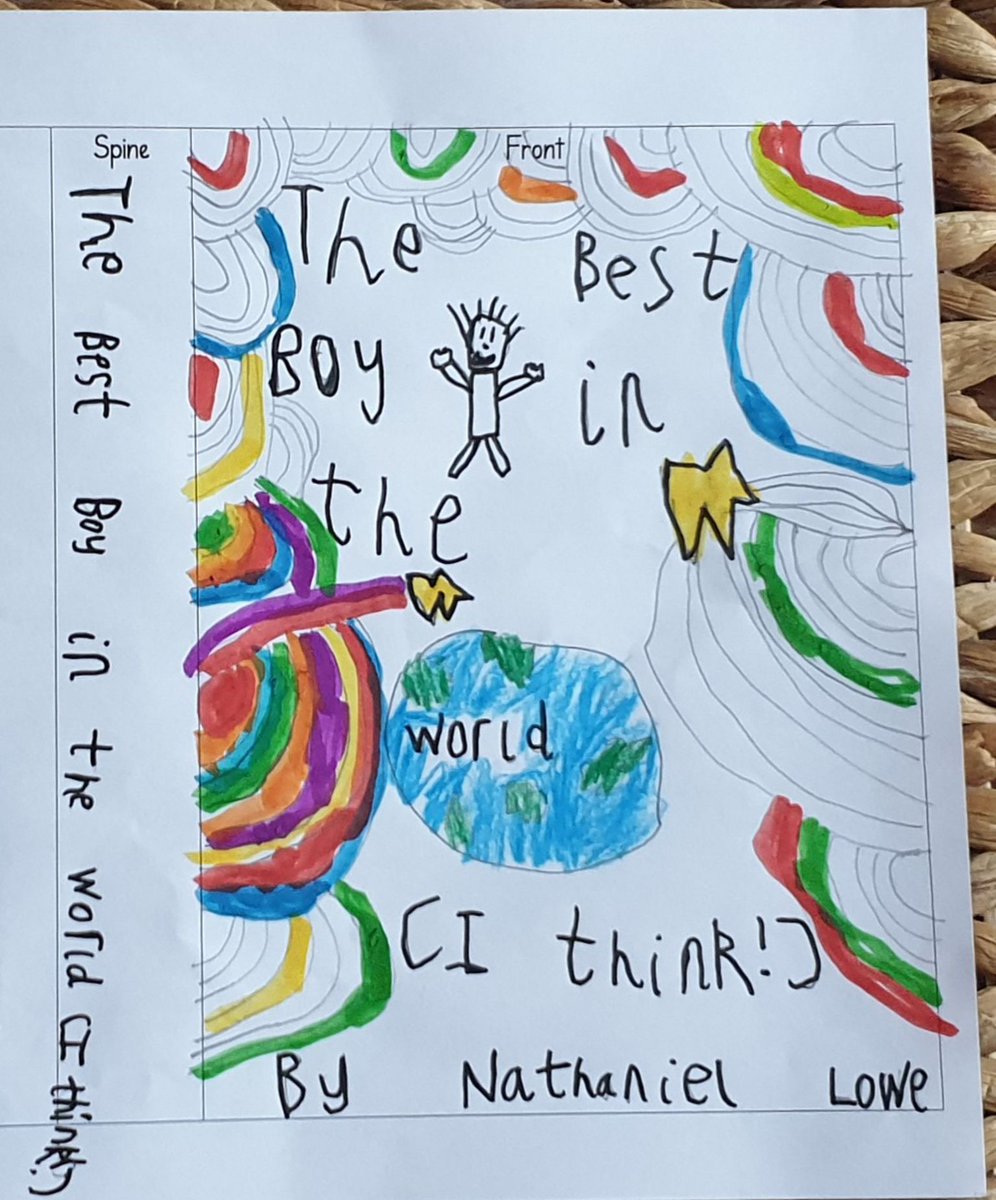 Spine
The Best Boy in the world (I think!)
Front
The Best
Boy in
the
world
(I think!)
By Nathaniel Lowe